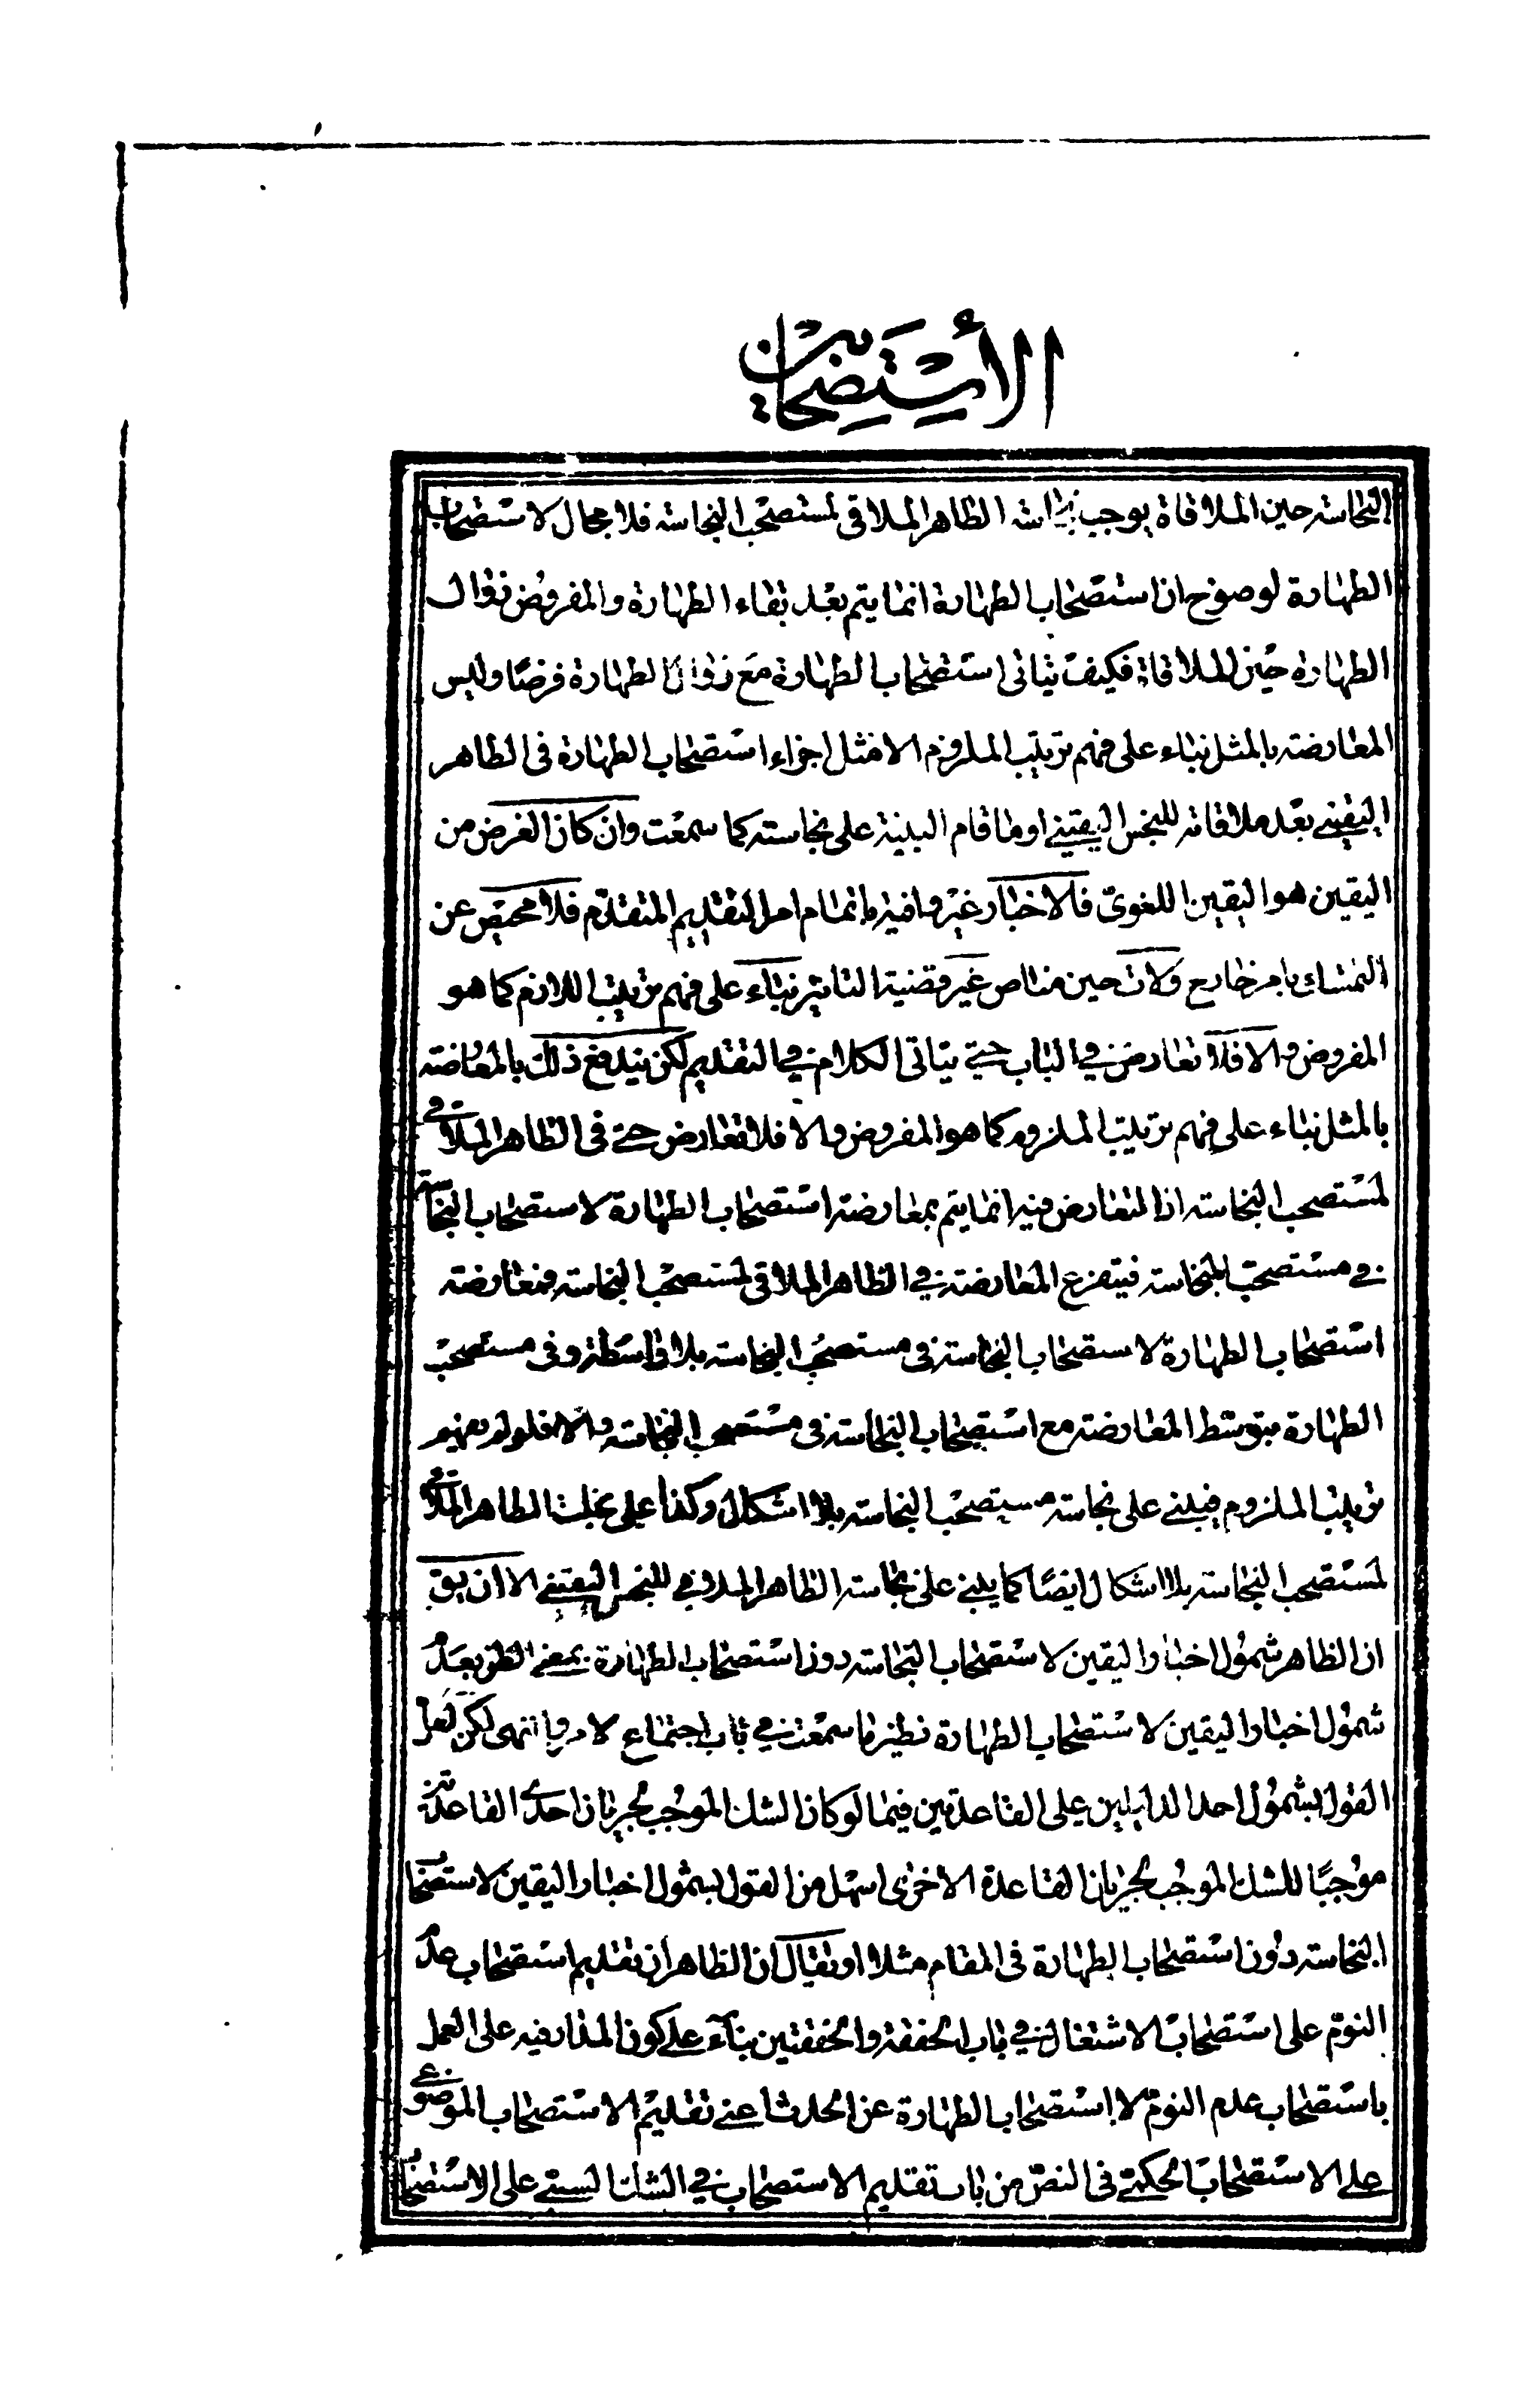 الاستصحاب
النجاسة حين الملاقاة يوجب نجاسة الطاهر الملاقى لمستصحب النجاسة فلا مجال لاستصحاب
الطهارة لوضوح ان استصحاب الطهارة انما يتم بعد بقاء الطهارة والمفروض زوال
الطهارة حين الملاقاة فكيف يتاتى استصحاب الطهارة مع زوال الطهارة فرضا وليس
المعارضة بالمثل بناء على فهم ترتيب الملزوم الا مثل اجراء استصحاب الطهارة فى الطاهر
اليقينى بعد ملاقاته للنجس اليقينى او ما قام البينة على نجاسته كما سمعت وان كان الغرض من
اليقين هو اليقين اللغوى فالاخبار غير وافية باتمام امر التقديم المتقدم فلا محيص عن
التمسك بامر خارج ولات حين مناص غير قضية التاثير بناء على فهم ترتيب اللازم كما هو
المفروض والا فلا تعارض فى الباب حتى يتاتى الكلام فى التقديم لكن يندفع ذلك بالمعارضة
بالمثل بناء على فهم ترتيب الملزوم كما هو المفروض والا فلا تعارض حتى فى الطاهر الملاقى
لمستصحب النجاسة اذ التعارض فيه انما يتم بمعارضة استصحاب الطهارة لاستصحاب النجاسة
فى مستصحب النجاسة فيتفرع المعارضة فى الطاهر الملاقى لمستصحب النجاسة فمعارضة
استصحاب الطهارة لاستصحاب النجاسة فى مستصحب النجاسة بلا واسطة وفى مستصحب
الطهارة بتوسط المعارضة مع استصحاب النجاسة فى مستصحب النجاسة والا فلو لم يفهم
ترتيب الملزوم فيبنى على نجاسة مستصحب النجاسة بلا اشكال وكذا على نجاسة الطاهر الملاقى
لمستصحب النجاسة بلا اشكال ايضا كما يبنى على نجاسة الطاهر الملاقى للنجس اليقينى الا ان يق
ان الظاهر شمول اخبار اليقين لاستصحاب النجاسة دون استصحاب الطهارة بمعنى بعد
شمول اخبار اليقين لاستصحاب الطهارة نظير ما سمعت فى باب اجتماع انتهى لكن لعل
القول بشمول احد الدليلين على القاعدتين فيما لو كان الشك الموجب لجريان احدى القاعدتين
موجبا للشك الموجب لجريان القاعدة الاخرى اسهل من القول بشمول اخبار اليقين لاستصحاب
النجاسة دون استصحاب الطهارة فى المقام مثلا او يقال ان الظاهر ان تقديم استصحاب عدم
النوم على استصحاب الاشتغال فى باب الخفقة والخفقتين بناء على كون المدار فيه على العمل
باستصحاب عدم النوم لا استصحاب الطهارة عن الحدث اعنى تقديم الاستصحاب الموضوعى
على الاستصحاب الحكمى فى النص من باب تقديم الاستصحاب فى الشك السببى على الاستصحاب